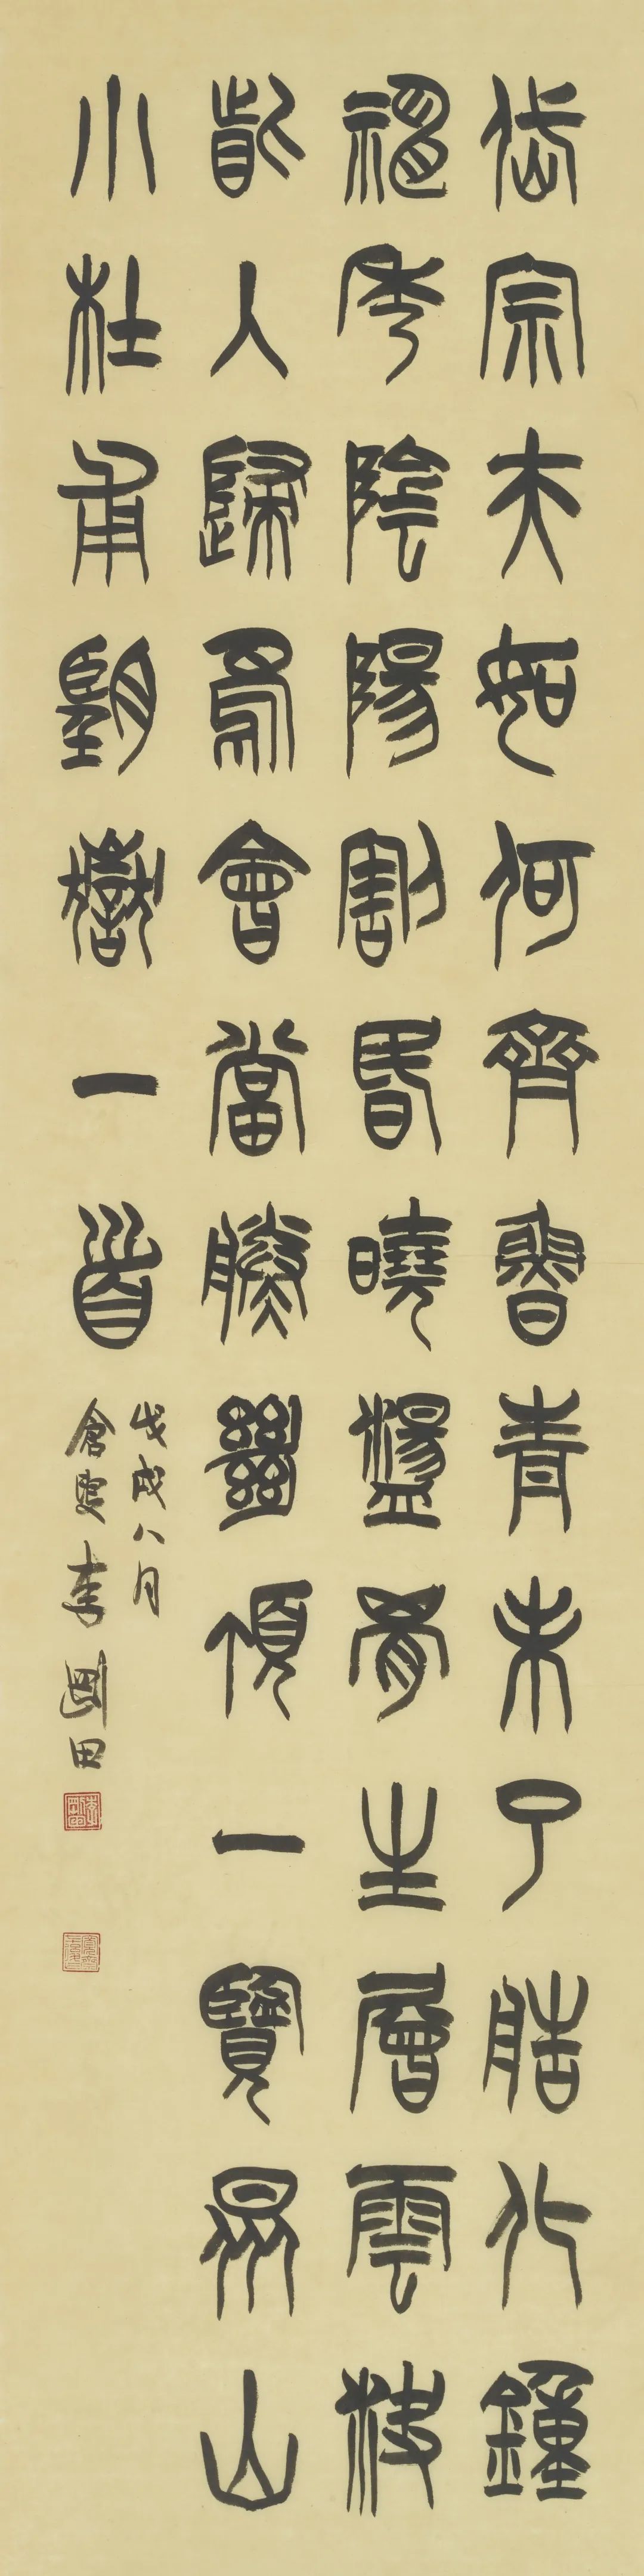 岱宗夫如何齊魯青未了造化鐘
神秀陰陽割昏曉盪胷生層雲決
眥入歸鳥會當凌絕頂一覽眾山
小杜甫望嶽一首
戊戌八月
倉叟李剛田